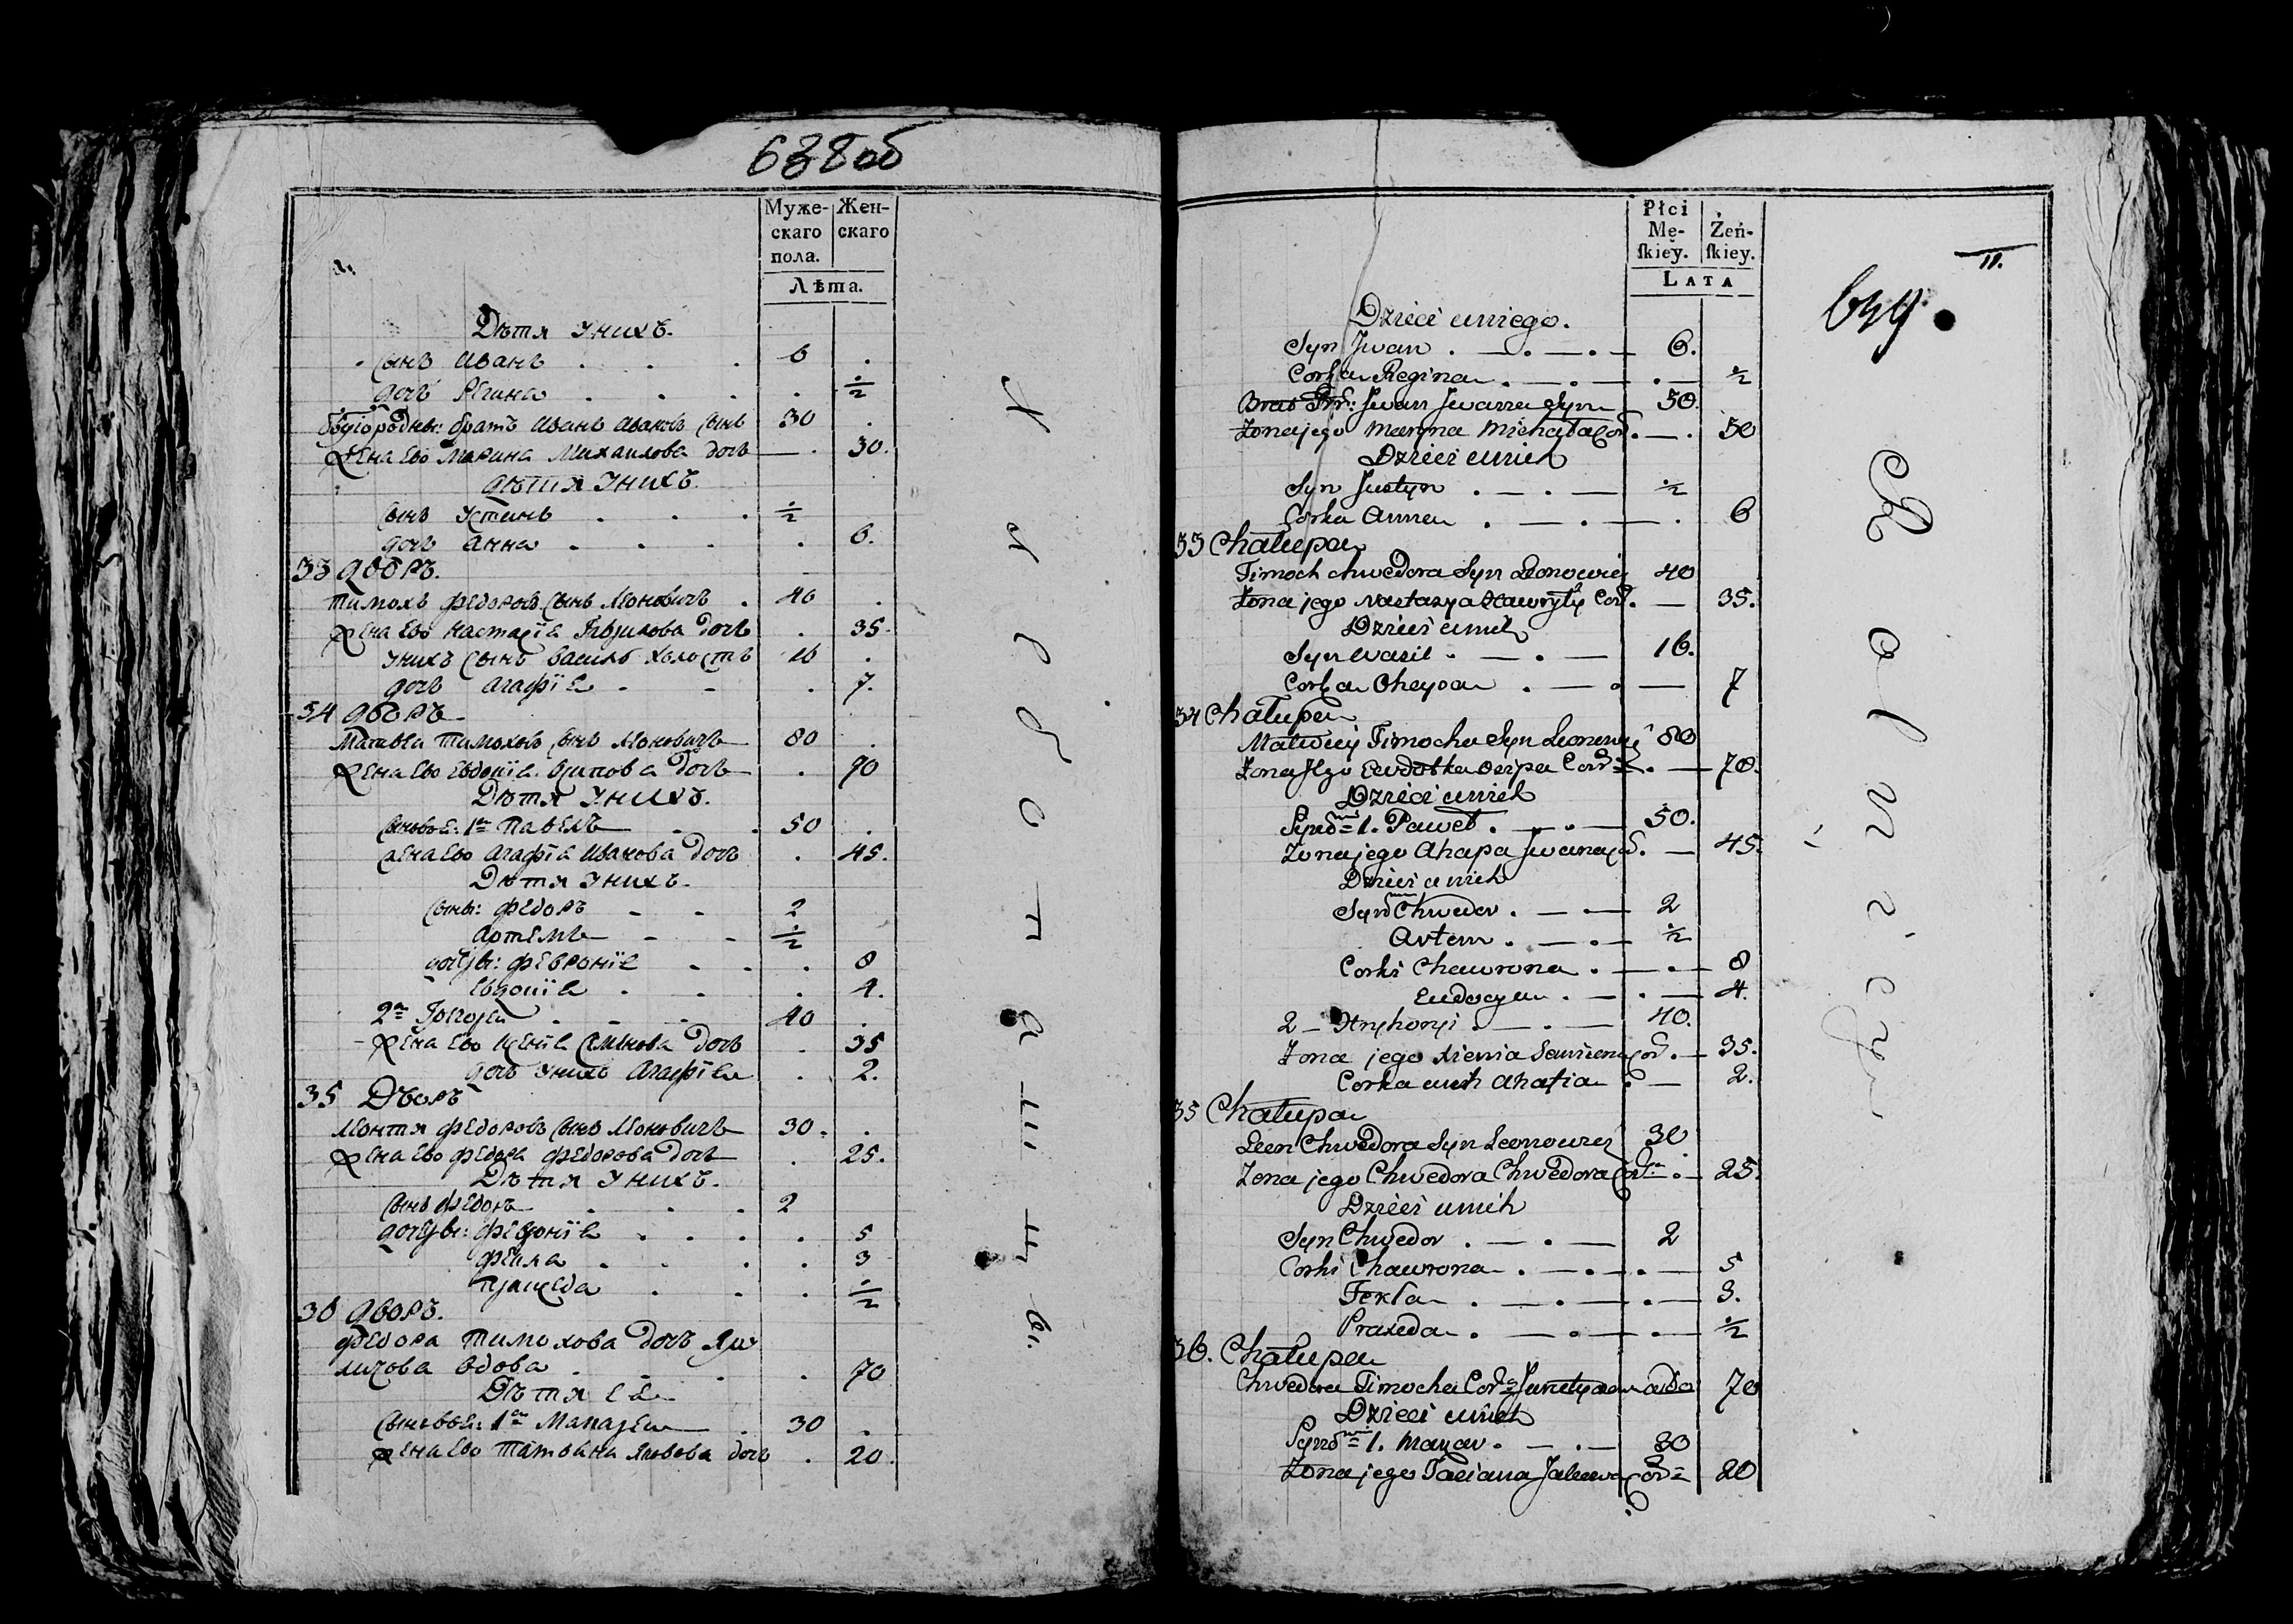 638об
Муже- Жен-
скаго скаго
пола.
Лѣта.
Дѣтя Унихъ.
Сынъ Иванъ . . . 6 .
дочь Регина . . . . ½
братъ Иванъ Ивановъ Сынъ 30 .
Жена Ево Марина Михаилова дочь — . 30.
дѣтя Унихъ.
Сынъ Устинъ . . . ½
дочь Анна . . . . 6.
33 дворъ.
Тимохъ Федоровъ Сынъ Леоновичъ . 40 .
Жена Ево Настасїя Гаврилова дочь . 35.
Унихъ Сынъ Василь холостъ 16 .
дочь Агафїя . - . 7.
34 дворъ
Матвеи Тимоховъ Сынъ Леоновичъ 80 .
Жена Ево Евдокїя Осипова дочь . 70
Дѣтя Унихъ.
Сыновья: 1й Павелъ . . 50 .
Жена Ево Агафїя Иванова дочь . 45.
Дѣтя Унихъ.
Сыны: Федоръ - - 2
Артемъ - - ½
дочери: Февронїя - . . 8
Евдокїя . - . 4.
2й . . . 40 .
Жена Ево Ксенїя Семенова дочь . 35
дочь Унихъ Агафїя . 2.
35 Дворъ
Леонтя Федоровъ Сынъ Леоновичъ 30. .
Жена Ево Федора Федорова дочь . 25.
Дѣтя Унихъ.
Сынъ Федоръ . . . 2
дочери: Февронїя . . . . 5
Фекла . . . . 3
. . . ½
36 дворъ.
Федора Тимохова дочь
вдова . . . . 70
Дѣтя Ея
Сыновья: 1й . 30 .
Жена Ево Татьяна Яковова дочь . 20.
Płci
Mę- Żeń-
ſkiey. ſkiey.
LATA
11.
639.
Dzieci uniego.
Syn Jwan . — . — . — 6.
Corka Regina . — . — . — ½
Brat Jwan Jwana Syn 30.
Zona jego Maryna Michała Cor. — . 30
Dzieci unich
Syn Justyn . — . — ½
Corka Anna . — . — . 6
33 Chałupa
Timoch Chwedora Syn Leonowicz 40
Zona jego Nastazya Hawryły Cor. — 35.
Dzieci unich
Syn Wasil . — . — 16.
Corka Oheyva . — . — 7
34 Chałupa
Matwiey Timocha Syn Leonowicz 80
Zona Jego Ewdotka Osipa Cor . — 70.
Dzieci unich
1. Paweł . — . — 50.
Zona jego Ahapa Jwana . — 45.
Dzieci unich
Chwedor . — . — 2
Artem . — . — ½
Corki Chawrona . — . — 8
Eudocya . — . — 4.
2 — Hryhoryi . — . — 40.
Zona jego Xienia Semiena cor. — 35.
Corka unich Ahafia . — 2.
35 Chałupa
Leon Chwedora Syn Leonowicz 30
Zona jego Chwedora Chwedora Cor . — 25.
Dzieci unich
Syn Chwedor . — . — 2
Corki Chawrona . — . — . — 5
Fekla . — . — . — 3.
Praxeda . — . — . — ½
36. Chałupa
Chwedora Timocha Cor wdo 70
Dzieci unich
1. Makar . — . — 30
Zona jego Taciana Jakowa Cor 20